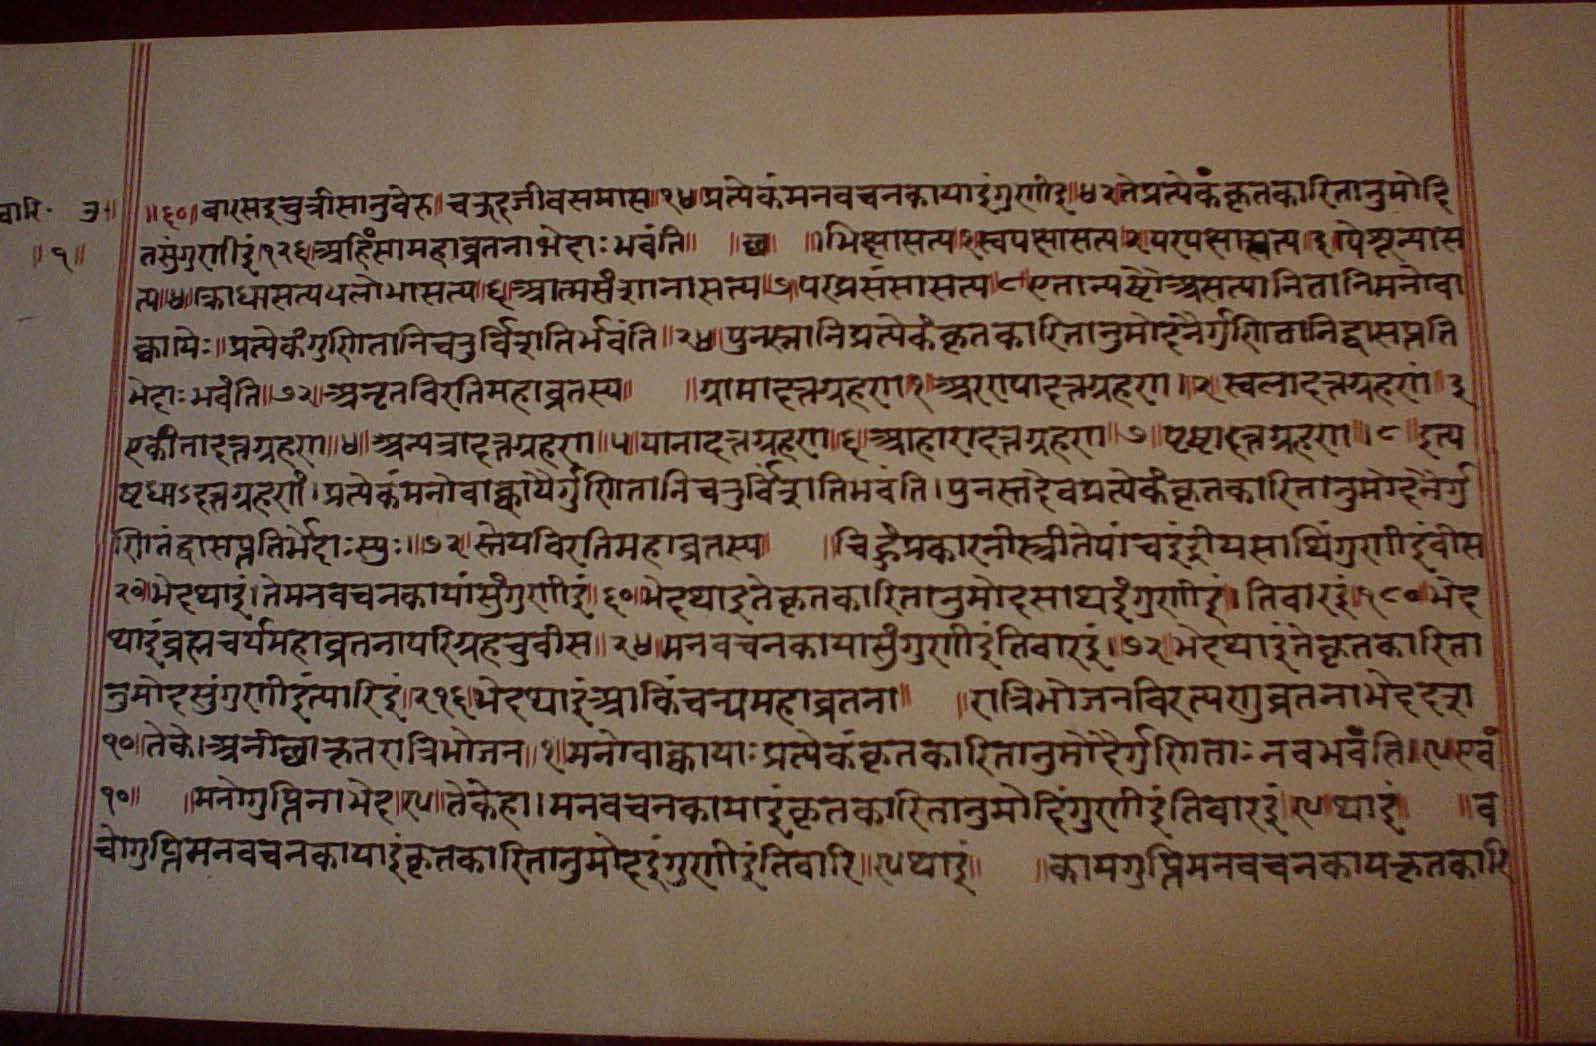 वारि ॰ ३॥
॥१॥
॥६०॥ बारसइचुत्रीसानुवेरु। चऊदजीवसमास॥१४॥प्रत्येकंमनवचनकायाइंगुणीइ॥४२॥तेप्रत्येकंकृतकारितानुमोदि
तसुंगुणीइं॥१२६॥अहिंसामहाव्रतनाभेदाःभवंति॥ ॥छ ॥ ।भिथ्यासत्य१स्वपक्षासत्य२परपक्षासत्य३पैशून्यास
त्य॥४॥क्रोधासत्य५लोभासत्य॥६॥आत्मसंशानासत्य॥७॥परप्रसंसासत्य॥८॥एतान्यष्टौअसत्यानितानिमनोवा
क्कायेः॥प्रत्येकंगुणितानिचतुर्विंशतिर्भवंति॥२४॥पुनस्तानिप्रत्येकंकृतकारितानुमोदनैर्गुणितानिद्वासप्तति
भेदाःभवंति॥७२॥अनृतविरतिमहाव्रतस्य॥ ॥ग्रामादत्तग्रहण॥१॥अरण्यादत्तग्रहण।२॥स्वलादत्तग्रहणं॥३
एकांतादत्तग्रहण॥४॥अन्यत्रादत्तग्रहण॥५॥पानादत्तग्रहण॥६॥आहारादत्तग्रहण॥७॥पृष्टादत्तग्रहण॥८॥इत्य
ष्टधाऽदत्तग्रहणं।प्रत्येकंमनोवाक्कायैर्गुणितानिचतुर्विंशतिभवंति।पुनस्तदेवप्रत्येकंकृतकारितानुमोदनैर्गु
णितंद्वासप्ततिर्भेदाःस्युः॥७२॥स्तेयविरतिमहाव्रतस्य॥ ॥चिहुंप्रकारनीस्त्रीतेपांचइंद्रीयसाथिंगुणीइंवीस
२०॥भेदथाइं।तेमनवचनकायासुंगुणीइं॥६०॥भेदथाइतेकृतकारितानुमोदसाथइंगुणीइं।तिवारइं॥१८०॥भेद
थाइंब्रह्मचर्यमहाव्रतनापरिग्रहचुवीस॥२४॥मनवचनकायासुंगुणीइंतिवारइं।७२॥भेदथाइंतेकृतकारिता
नुमोदसुंगुणीइंत्यारिइं॥२१६॥भेदथाइंआकिंचन्यमहाव्रतना॥ ॥रात्रिभोजनविरत्यणुव्रतनाभेददश
१०॥तेके।अनीछाकृतरात्रिभोजन॥१॥मनोवाक्कायाःप्रत्येकंकृतकारितानुमोदैर्गुणिताःनवभवंति।९॥एवं
१०॥ ॥मनोगुप्तिनाभेद॥९॥तेकेहा।मनवचनकायाइंकृतकारितानुमोदिंगुणीइंतिवारइं॥९॥थाइं॥ ॥व
चोगुप्तिमनवचनकायाइंकृतकारितानुमोदइंगुणीइंतिवारि॥९॥थाइं॥ ॥कायगुप्तिमनवचनकायकृतकारि